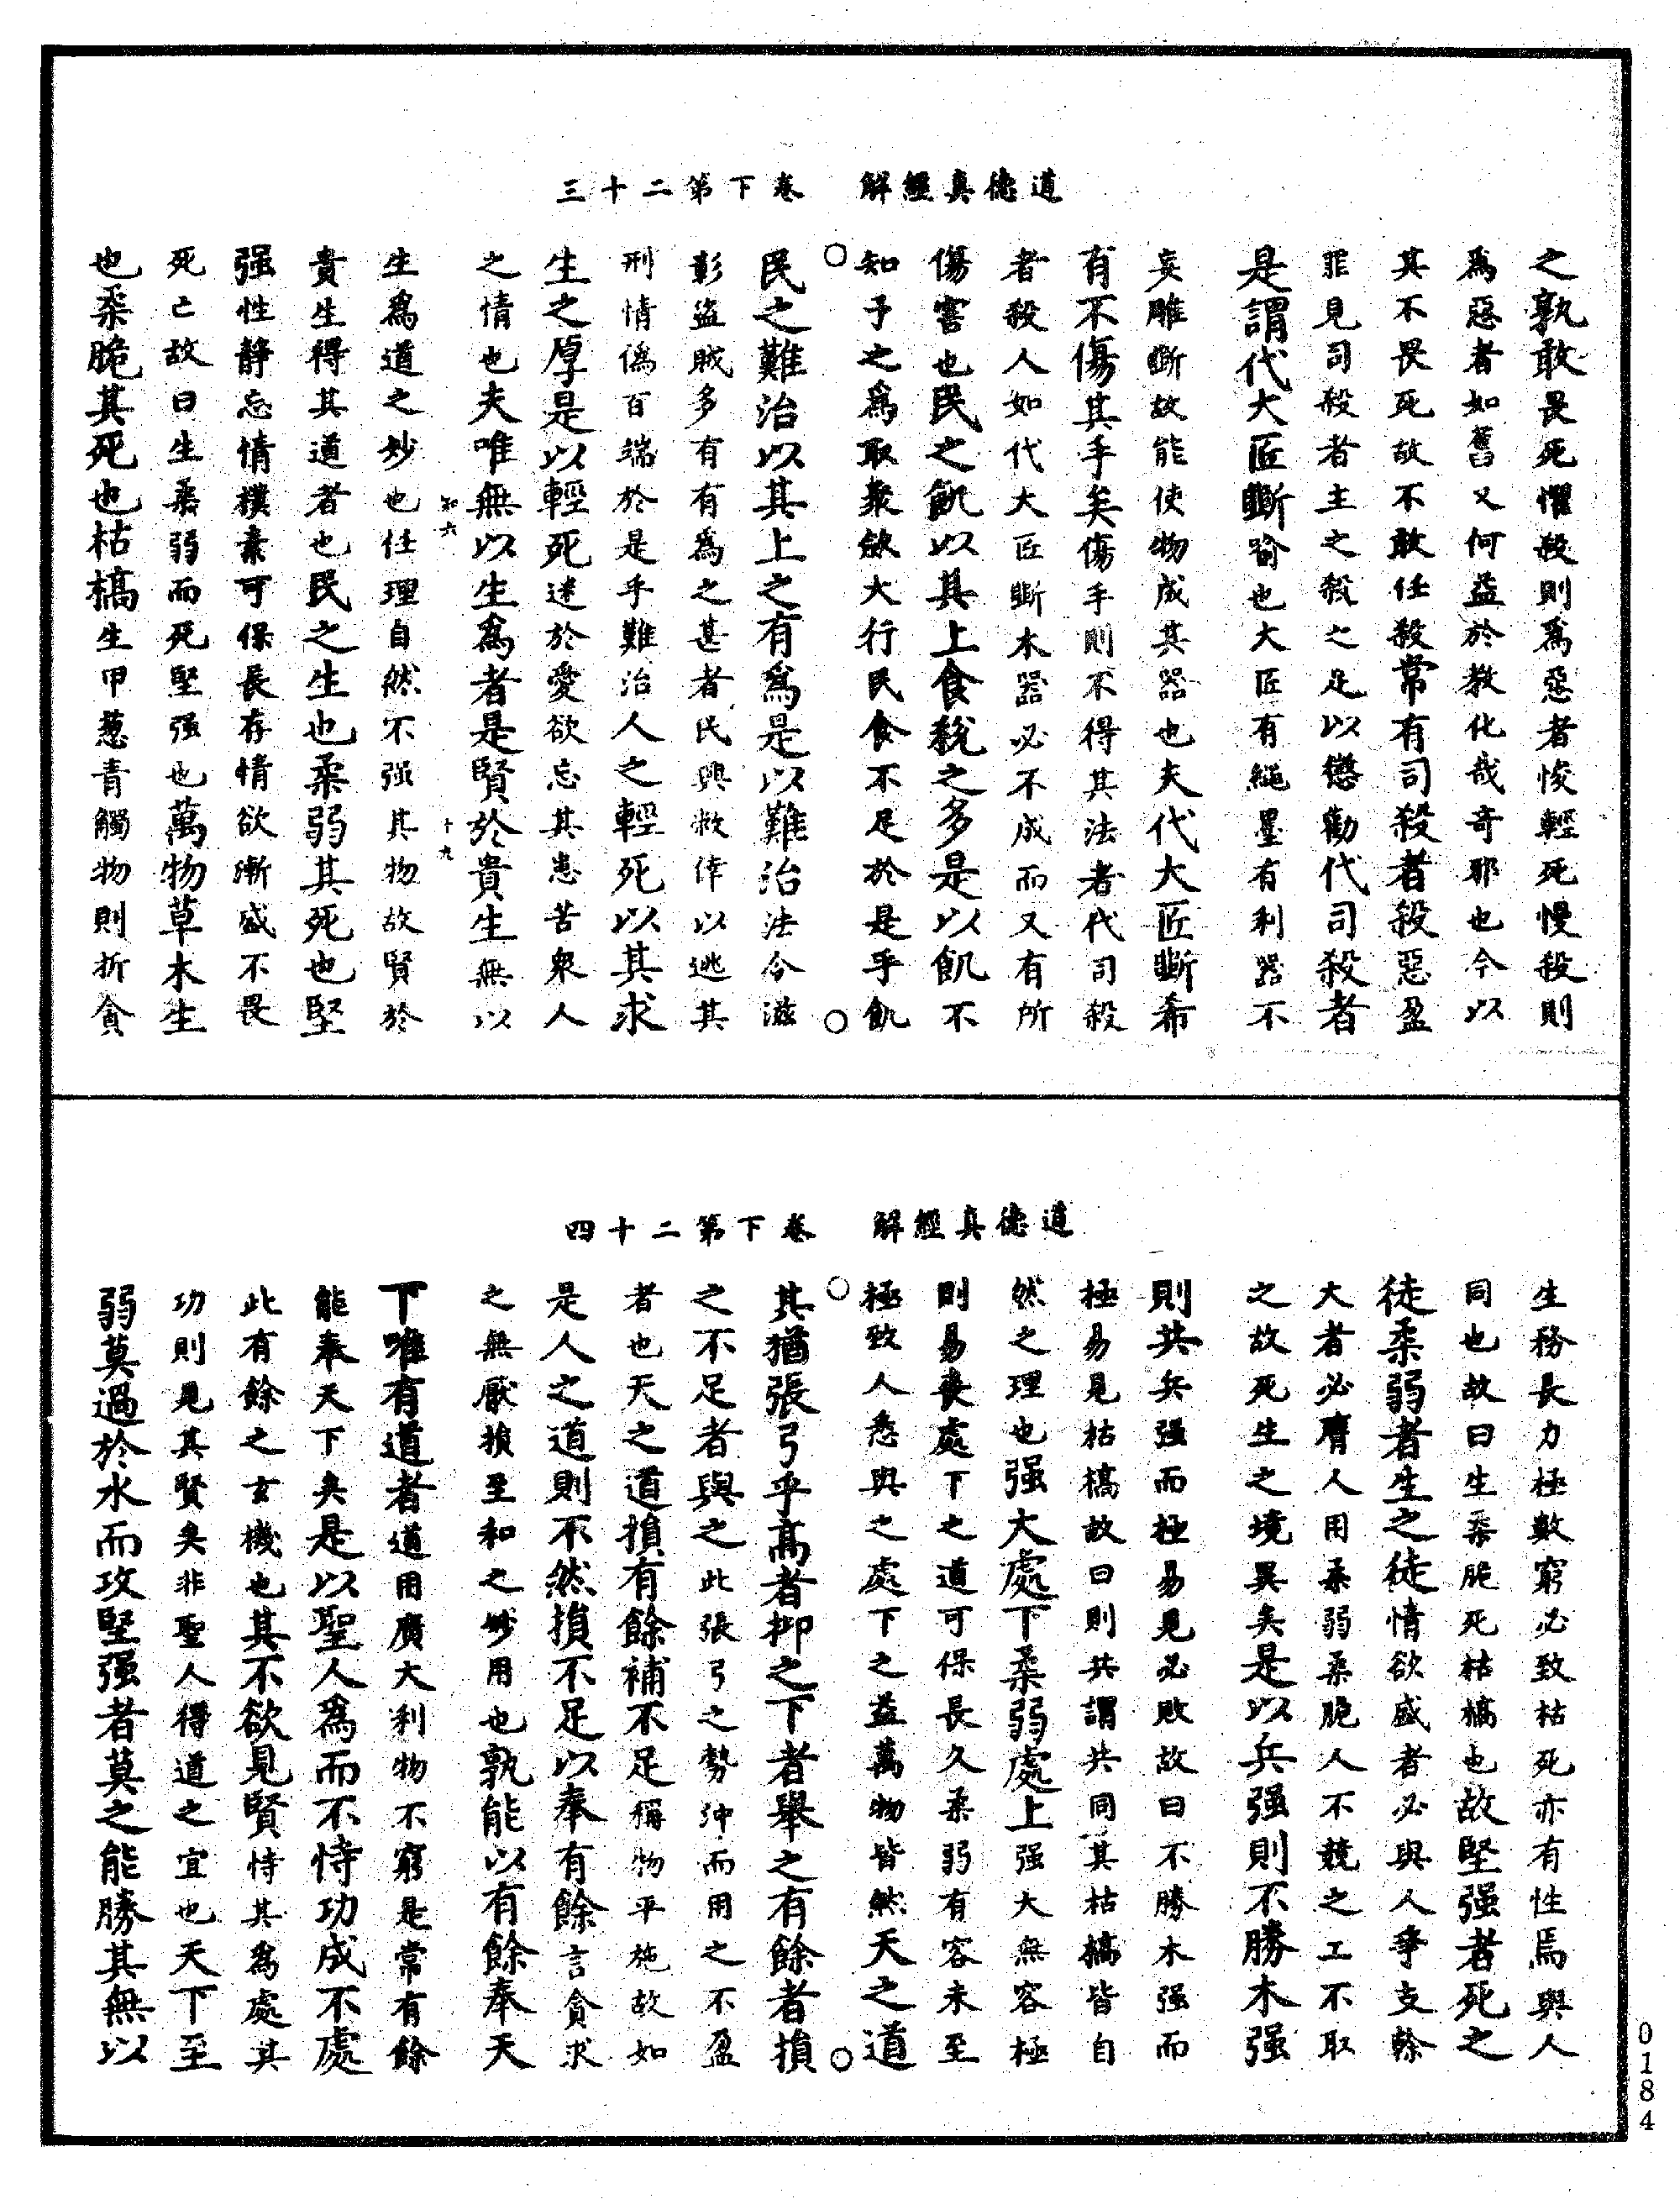 道德真經解　卷下第二十三
之孰敢畏死懼殺則爲惡者悛輕死慢殺則
爲惡者如舊又何益於教化哉奇耶也今以
其不畏死故不敢任殺常有司殺者殺惡盈
罪見司殺者主之殺之足以懲勸代司殺者
是謂代大匠斲喻也大匠有繩墨有利器不
妄雕斲故能使物成其器也夫代大匠斲希
有不傷其手矣傷手則不得其法者代司殺
者殺人如代大匠斲木器必不成而又有所
傷害也民之飢以其上食稅之多是以飢不
知予之爲取衆斂大行民食不足於是乎飢
民之難治以其上之有爲是以難治法令滋
彰盜賊多有有爲之甚者民興救倖以逃其
刑情僞百端於是乎難治人之輕死以其求
生之厚是以輕死迷於愛欲忘其患苦衆人
之情也夫唯無以生爲者是賢於貴生無以
知六　十九
生爲道之妙也任理自然不强其物故賢於
貴生得其道者也民之生也柔弱其死也堅
强性靜忘情樸素可保長存情欲漸盛不畏
死亡故曰生柔弱而死堅强也萬物草木生
也柔脆其死也枯槁生甲葱青觸物則折貪
道德真經解　卷下第二十四
生務長力極數窮必致枯死亦有性焉與人
同也故曰生柔脆死枯槁也故堅强者死之
徒柔弱者生之徒情欲盛者必與人爭支幹
大者必膺人用柔弱柔脆人不競之工不取
之故死生之境異矣是以兵强則不勝木强
則共兵强而極易見必敗故曰不勝木强而
極易見枯槁故曰則共謂共同其枯槁皆自
然之理也强大處下柔弱處上强大無容極
則易喪處下之道可保長久柔弱有容未至
極致人悉與之處下之益萬物皆然天之道
其猶張弓乎高者抑之下者舉之有餘者損
之不足者與之此張弓之勢沖而用之不盈
者也天之道損有餘補不足稱物平施故如
是人之道則不然損不足以奉有餘言貪求
之無厭損至和之妙用也孰能以有餘奉天
下唯有道者道用廣大利物不窮是常有餘
能奉天下矣是以聖人爲而不恃功成不處
此有餘之玄機也其不欲見賢恃其爲處其
功則見其賢矣非聖人得道之宜也天下至
弱莫過於水而攻堅强者莫之能勝其無以
0184